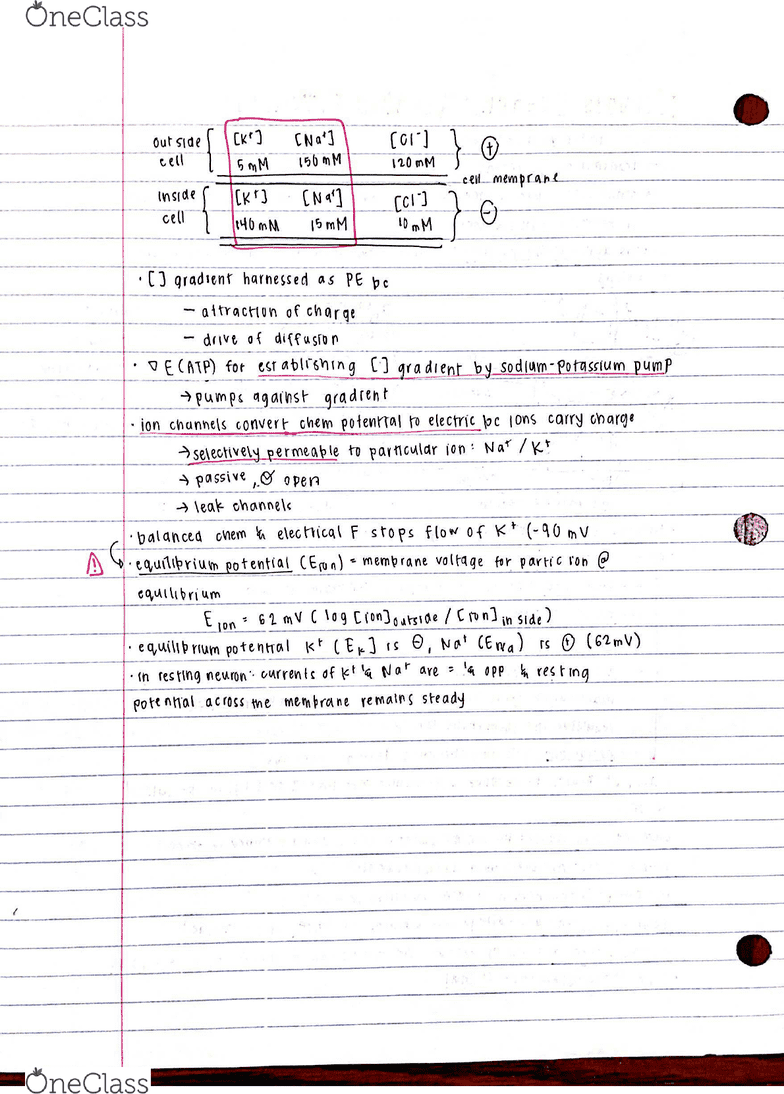 OneClass
outside cell [K⁺] [Na⁺] [Cl⁻] ⊕
5 mM 150 mM 120 mM
cell memprane
Inside cell [K⁺] [Na⁺] [Cl⁻] ⊖
140 mM 15 mM 10 mM
· [ ] gradient harnessed as PE bc
– attraction of charge
– drive of diffusion
· ∇ E (ATP) for establishing [ ] gradient by sodium-potassium pump
→ pumps against gradient
· ion channels convert chem potential to electric bc ions carry charge
→ selectively permeable to particular ion: Na⁺ / K⁺
→ passive, open
→ leak channels
· balanced chem & electrical F stops flow of K⁺ (-90 mV
· equilibrium potential (Eion) = membrane voltage for partic ion @
equilibrium
Eion = 62 mV (log [ion]outside / [ion]inside)
· equilibrium potential K⁺ (EK] is ⊖, Na⁺ (ENa) is ⊕ (62mV)
· in resting neuron: currents of K⁺ & Na⁺ are = & opp & resting
potential across the membrane remains steady
OneClass